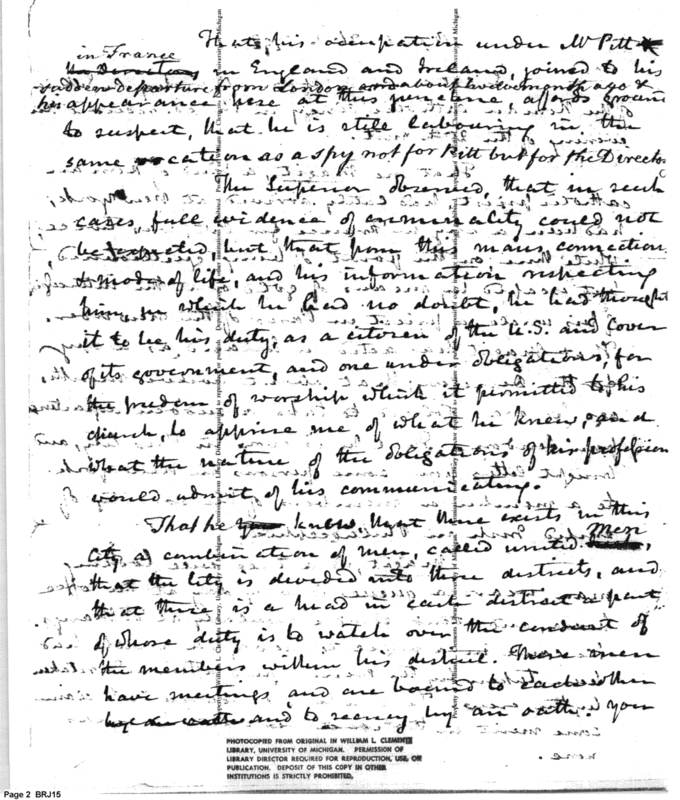 That his occupation under Mr Pitt
in France
in England and Ireland, joined to his
sudden departure from London and about twelve months ago &
his appearance here at this juncture, affords ground
to suspect, that he is still labouring in the
same vocation as a spy not for Pitt but for the Directory
The Superior observed, that in such
cases, full evidence of criminality could not
be expected, but that from this mans connection
& mode of life, and his information respecting
him, in which he had no doubt, he had thought
it to be his duty, as a citizen of the U.S. and lover
of its government, and one under obligations, for
the freedom of worship which it permitted to his
church, to apprise me, of what he knew, and
what the nature of the obligations of his profession
would admit of his communicating.
That he knew that there exists in this
City a combination of men, called united Men,
that the City is divided into three districts, and
that there is a head in each district a part
of whose duty is to watch over the conduct of
the members within his district. These men
have meetings and are bound to each other
and to secrecy by an oath. You
PHOTOCOPIED FROM ORIGINAL IN WILLIAM L. CLEMENTS
LIBRARY, UNIVERSITY OF MICHIGAN. PERMISSION OF
LIBRARY DIRECTOR REQUIRED FOR REPRODUCTION, USE, OR
PUBLICATION. DEPOSIT OF THIS COPY IN OTHER
INSTITUTIONS IS STRICTLY PROHIBITED.
Page 2 BRJ15